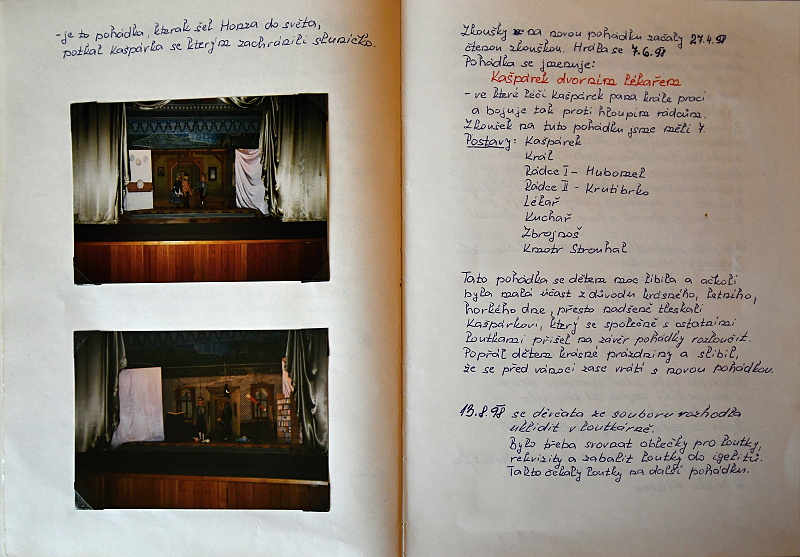 - je to pohádka, kterak šel Honza do světa,
potkal Kašpárka se kterým zachránili sluníčko.
Zkoušky na novou pohádku začaly 27.4.98
čtenou zkouškou. Hrála se 7.6.98
Pohádka se jmenuje:
Kašpárek dvorním lékařem
- ve které léčí Kašpárek pana krále prací
a bojuje tak proti hloupým rádcům.
Zkoušek na tuto pohádku jsme měli 7.
Postavy: Kašpárek
Král
Rádce I - Hubomel
Rádce II - Krutibrko
Lékař
Kuchař
Zbrojnoš
Kmotr Strouhal
Tato pohádka se dětem moc líbila a ačkoli
byla malá účast z důvodu krásného, letního,
horkého dne, přesto nadšeně tleskali
Kašpárkovi, který se společně s ostatními
loutkami přišel na závěr pohádky rozloučit.
Popřál dětem krásné prázdniny a slíbil,
že se před vánoci zase vrátí s novou pohádkou.
13.8.98 se děvčata ze souboru rozhodla
uklidit v loutkárně.
Bylo třeba srovnat oblečky pro loutky,
rekvizity a zabalit loutky do igelitů.
Takto čekaly loutky na další pohádku.